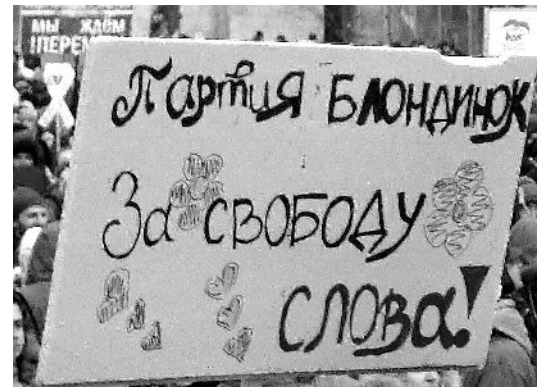 МЫ ЖДЁМ
Партия БЛОНДИНОК
За СВОБОДУ
СЛОВа!